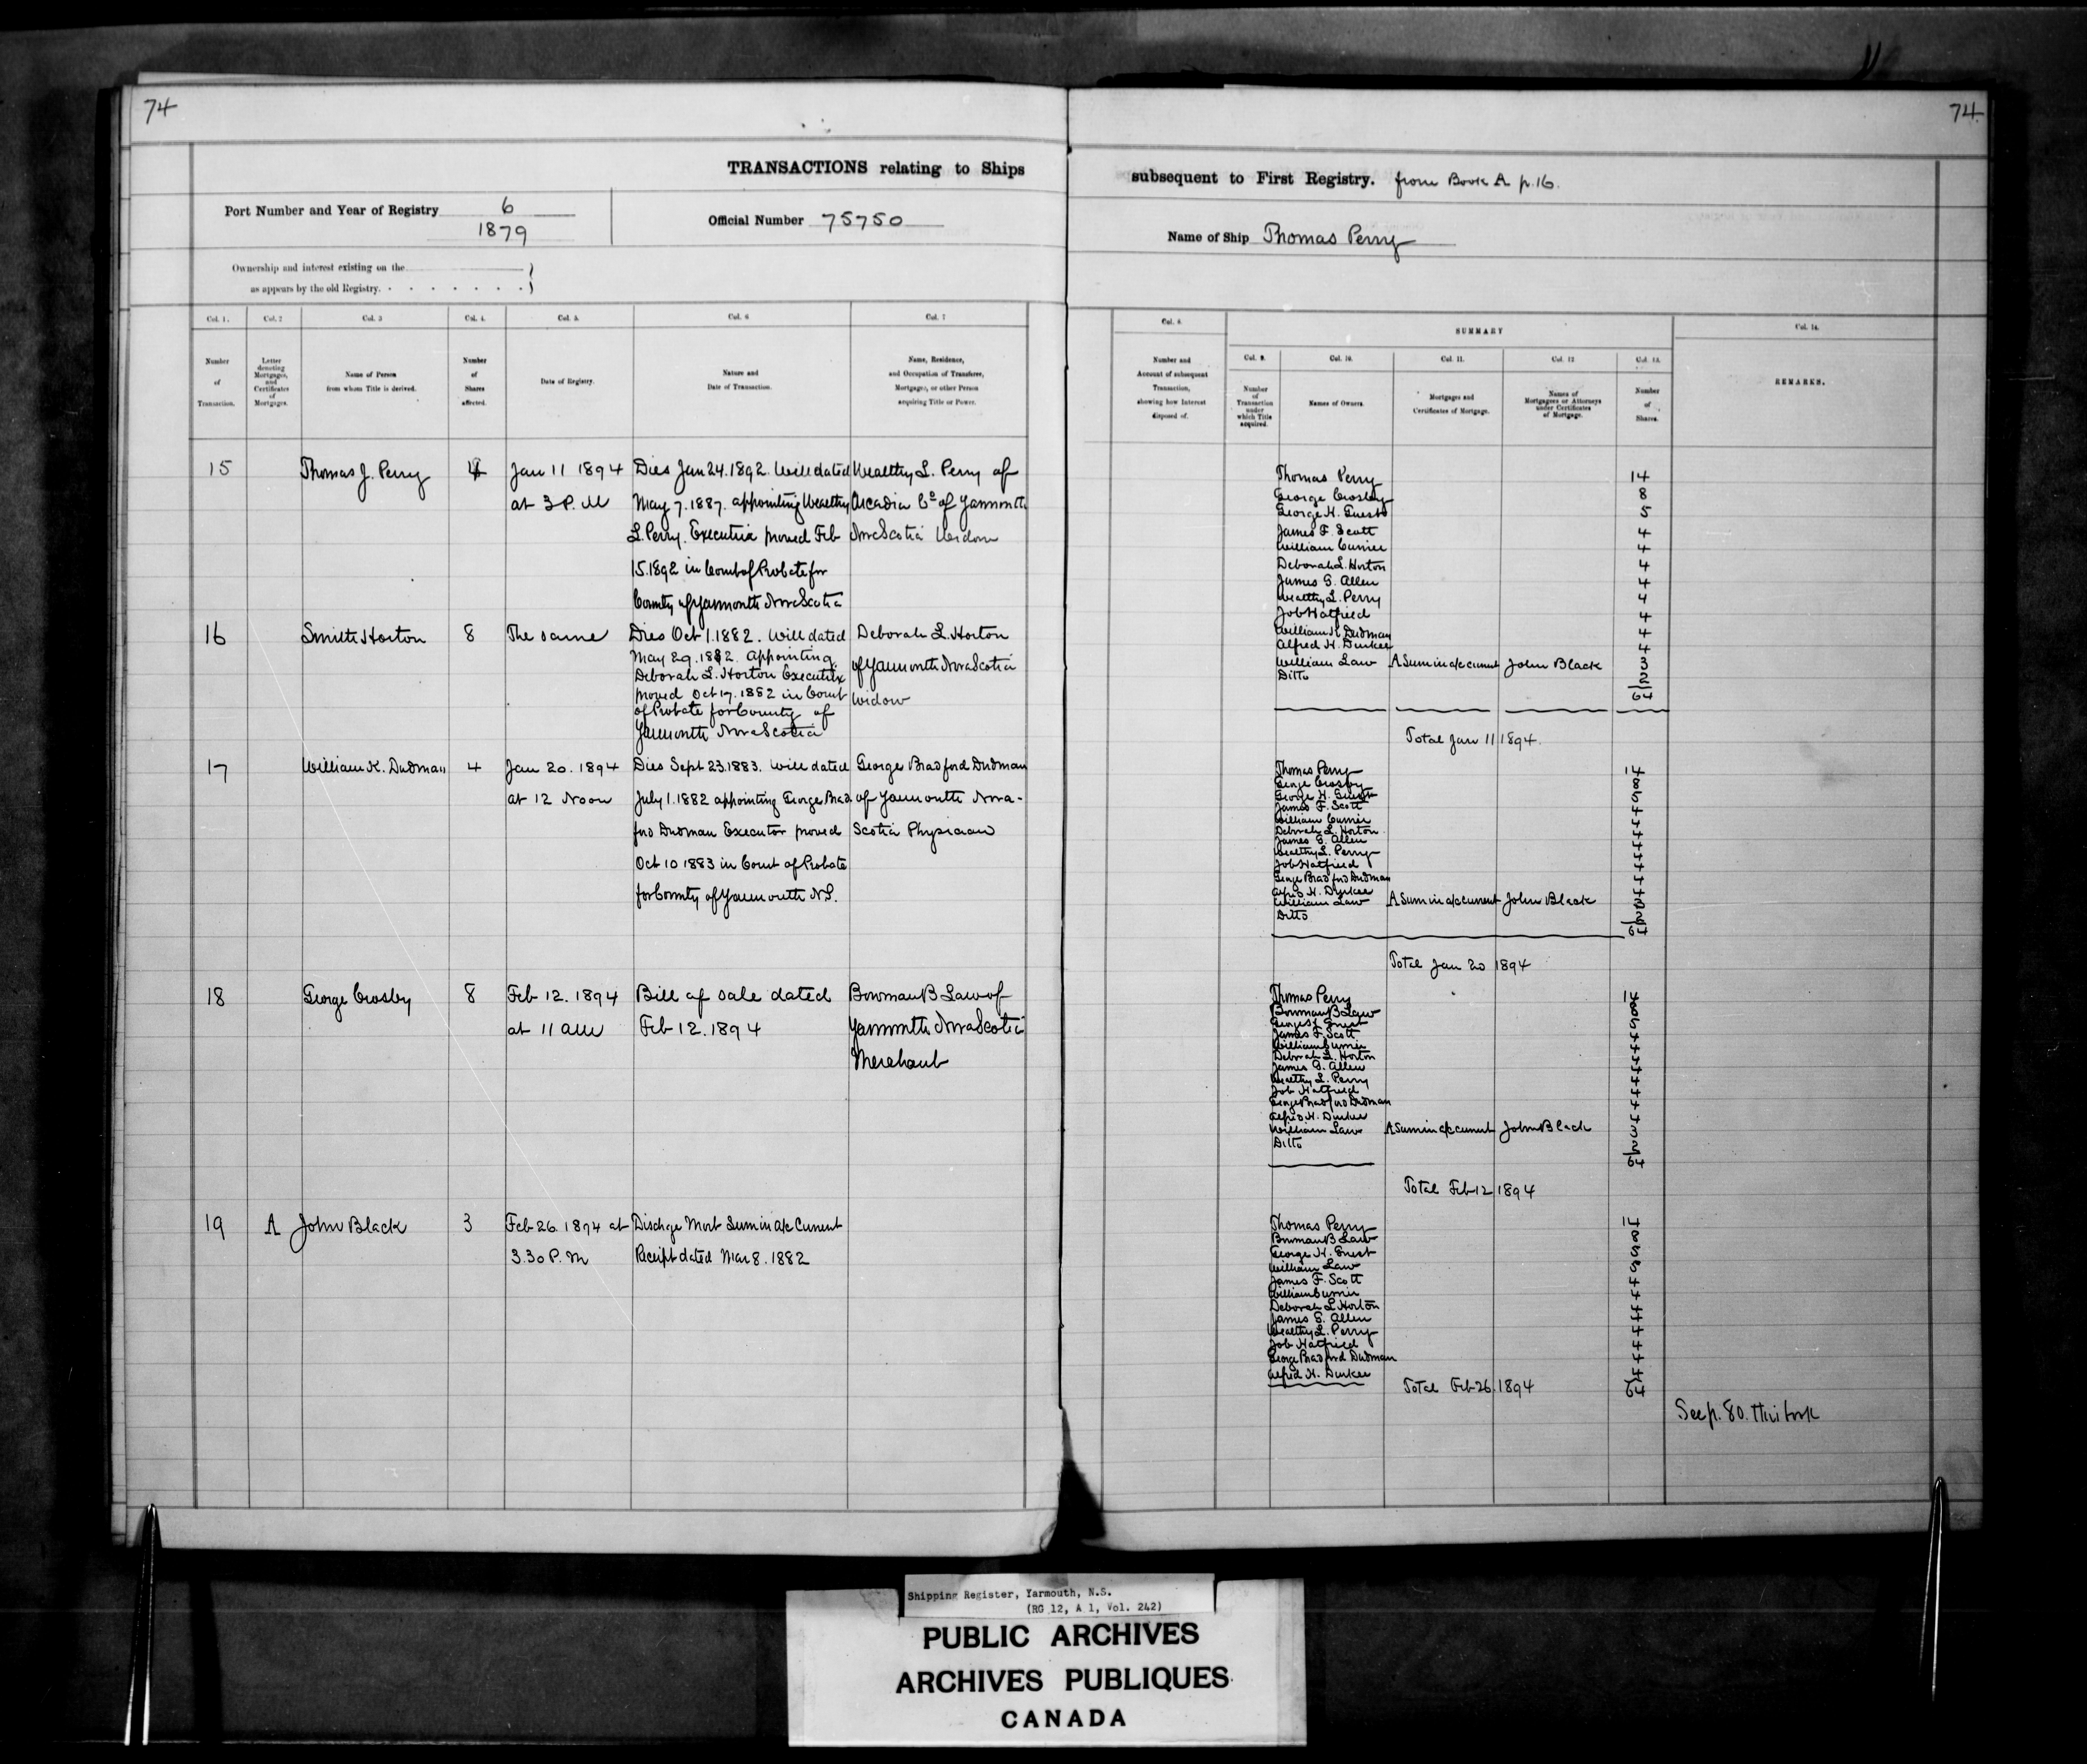 74
TRANSACTIONS relating to Ships
Port Number and Year of Registry 6
1879
Official Number 75750
Ownership and interest existing on the
as appears by the old Registry.
Col. 1.
Col. 2
Col. 3
Col. 4.
Col. 5.
Col. 6
Col. 7
Number
of
Transaction.
Letter
denoting
Mortgages,
and
Certificates
of
Mortgages.
Name of Person
from whom Title is derived.
Number
of
Shares
affected.
Date of Registry.
Nature and
Date of Transaction.
Name, Residence,
and Occupation of Transferee,
Mortgagee, or other Person
acquiring Title or Power.
15
Thomas J. Perry
4
Jan 11 1894
at 3 P.M
Dies Jan 24.1892. Will dated
May 7.1887. appointing Wealthy
L. Perry. Executrix proved Feb
15.1892 in Court of Probate for
County of Yarmouth Nova Scotia
Wealthy L. Perry of
Arcadia Co of Yarmouth
Nova Scotia Widow
16
Smith Horton
8
The same
Dies Oct 1.1882. Will dated
May 29.1882. Appointing
Deborah L. Horton Executrix
proved Oct 17.1882 in Court
of Probate for County of
Yarmouth Nova Scotia
Deborah L. Horton
of Yarmouth Nova Scotia
Widow
17
William K. Dudman
4
Jan 20. 1894
at 12 Noon
Dies Sept 23.1883. Will dated
July 1.1882 appointing George Brad
ford Dudman Executor proved
Oct 10 1883 in Court of Probate
for County of Yarmouth N.S.
George Bradford Dudman
of Yarmouth Nova-
Scotia Physician
18
George Crosby
8
Feb 12. 1894
at 11 am
Bill of sale dated
Feb 12. 1894
Bowman B Law of
Yarmouth Nova Scotia
Merchant
19
A
John Black
3
Feb 26. 1894 at
3.30 P.M
Dischge Mort Sum in a/c Current
Receipt dated Mar 8. 1882
74.
subsequent to First Registry. from Book A p.16.
Name of Ship Thomas Perry
Col. 8.
SUMMARY
Col. 14.
Number and
Account of subsequent
Transaction,
showing how Interest
disposed of.
Col. 9.
Col. 10.
Col. 11.
Col. 12
Col. 13.
Number
of
Transaction
under
which Title
acquired.
Names of Owners.
Mortgages and
Certificates of Mortgage.
Names of
Mortgagees or Attorneys
under Certificates
of Mortgage.
Number
of
Shares.
REMARKS.
Thomas Perry 14
George Crosby 8
George H. Guest 5
James F. Scott 4
William Currier 4
Deborah L. Horton 4
James G. Allen 4
Wealthy L. Perry 4
Job Hatfield 4
William K Dudman 4
Alfred H. Durkee 4
William Law A Sum in a/c current John Black 3
Ditto 2
64
Total Jan 11 1894.
Thomas Perry 14
George Crosby 8
George H. Guest 5
James F. Scott 4
William Currier 4
Deborah L. Horton 4
James G. Allen 4
Wealthy L. Perry 4
Job Hatfield 4
George Bradford Dudman 4
Alfred H. Durkee 4
William Law A Sum in a/c current John Black 3
Ditto 2
64
Total Jan 20 1894
Thomas Perry 14
Bowman B Law 8
George H Guest 5
James F. Scott 4
William Currier 4
Deborah L. Horton 4
James G. Allen 4
Wealthy L. Perry 4
Job Hatfield 4
George Bradford Dudman 4
Alfred H. Durkee 4
William Law A Sum in a/c current John Black 3
Ditto 2
64
Total Feb 12 1894
Thomas Perry 14
Bowman B Law 8
George H. Guest 5
William Law 5
James F. Scott 4
William Currier 4
Deborah L Horton 4
James G. Allen 4
Wealthy L. Perry 4
Job Hatfield 4
George Bradford Dudman 4
Alfred H. Durkee 4
Total Feb 26.1894 64
See p. 80. this book
Shipping Register, Yarmouth, N.S.
(RG 12, A 1, Vol. 242)
PUBLIC ARCHIVES
ARCHIVES PUBLIQUES
CANADA